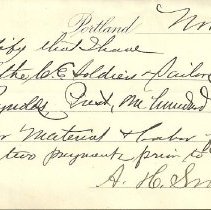 Portland Nov
tify that I have
the C.E. Soldiers & Sailors
Reynolds Prest, One hundred
or Material & Labor
two payments prior to
A. H. Sm